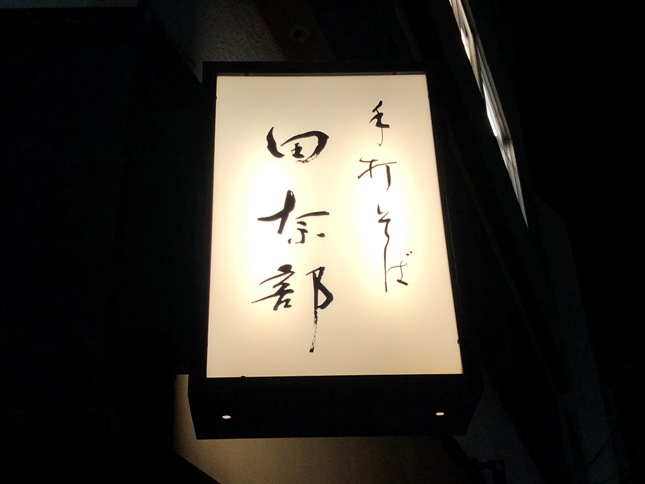 手打そば
田奈部